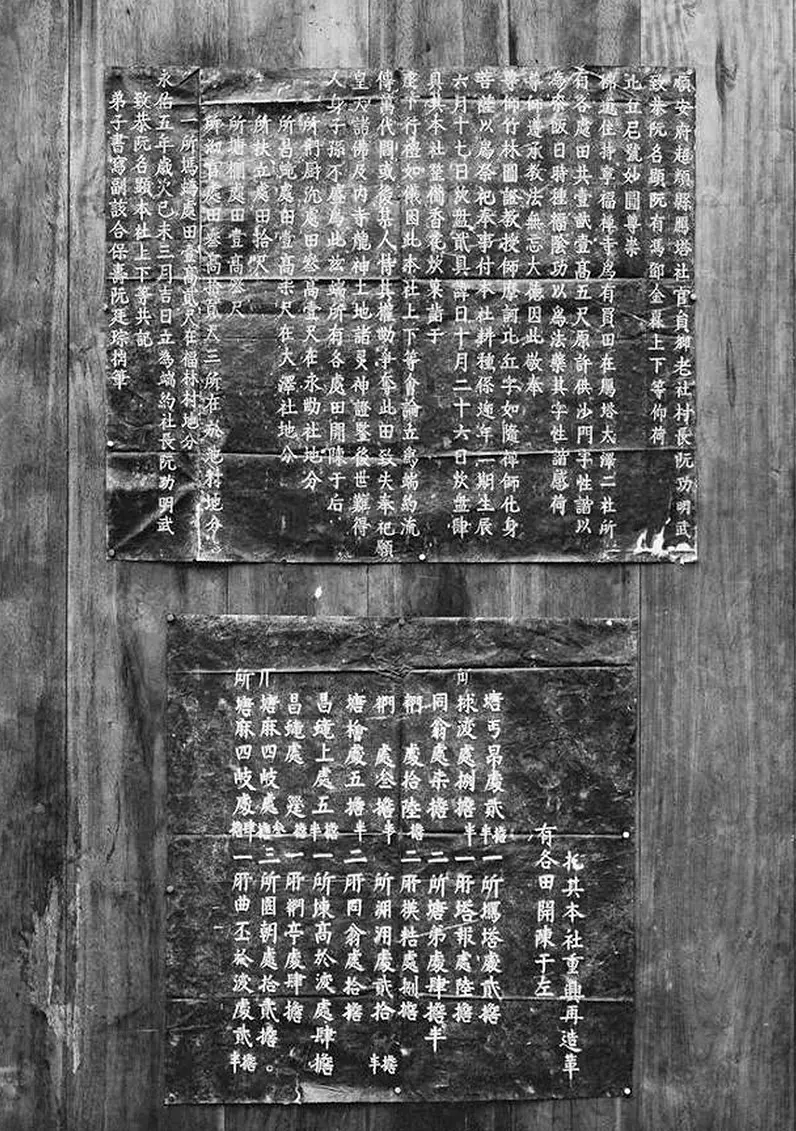 順安府超類縣鴈塔社官員鄉老社村長阮功明武
致恭阮各顯阮有馮鄧金羅上下等仰荷
比丘尼號妙圓尊崇
住持享福禪寺為有員田在鴈塔大澤二社所
有各處田共壹貳壹高五尺原許供沙門字性諧以
為齋飯日時種福陰功以為法樂其字性諧感荷
尊師遺承教法無忘大德因此敬奉
尊師竹林圓證教授師摩訶比丘字如隨禪師化身
菩薩以為祭祀奉事付本社耕種係逓年一期生辰
六月十七日炊盤貳具諱日十月二十六日炊盤肆
具其本社整備香花炊果詣于
堂下行禮如儀因此本社上下等會論立為端約流
傳萬代閒或後某人恃其權勸爭奪此田致失奉祀願
皇天諸佛及內寺龍神土地諸靈神證鑒後世難得
人身子孫不盛為此玆端所有各處田開陳于后
一所𨷈厨沉處田叄高壹尺在永勸社地分
一所昌繩處田壹高柒尺在大澤社地分
一所扶立處田拾尺
一所塘棚處田壹高叄尺
一所沏官處田叄高拾貳尺三所在於池村地分
一所塢㙮處田壹高貳尺在福林村地分
永佑五年歲次己未三月吉日立為端約社長阮功明武
致恭阮各顯本社上下等共記
弟子書寫副該合保壽阮廷琮㧣筆
抄其本社重興再造華
有各田開陳于左
塘丐昴處貳擔半一所塢塔處貳擔
所球波處捌擔半一所塔報處陸擔
同翁處柒擔二所塘弟處肆擔半
𨷈處拾陸擔二所漢轄處捌擔
𨷈處叄擔半一所淵用處貳拾擔半
塘檜處五擔半二所同翁處拾擔
昌繩上處五擔半一所堜高於波處肆擔
昌繩處筳擔一所𨷈亭處肆擔
所塘麻四岐處叄擔三所固朝處拾貳擔
所塘麻四岐處肆擔一所曲丕於波處貳擔半